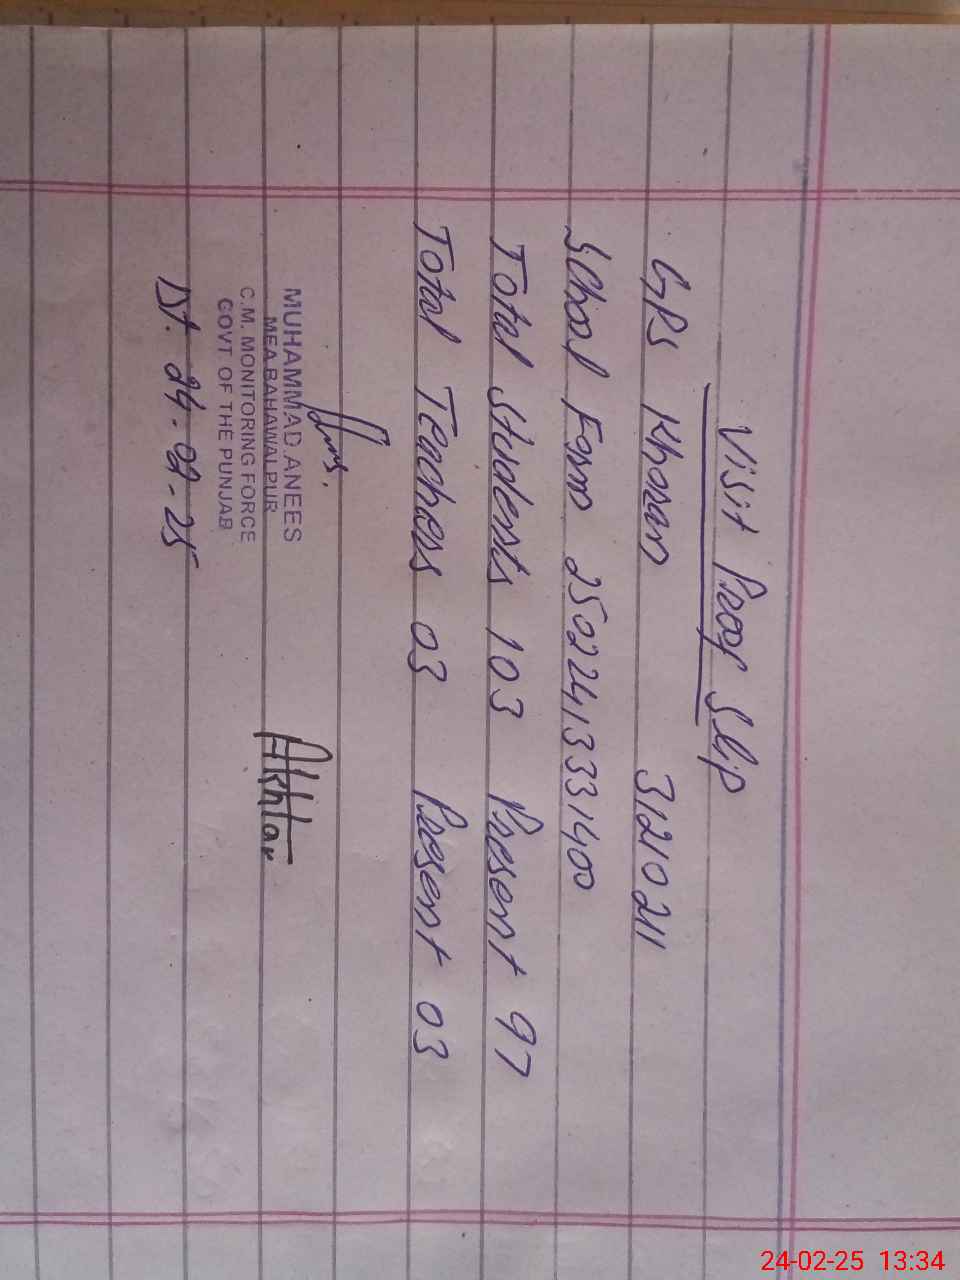 Visit Proof Slip
GPS Khoran 31210211
School Form 25022413331400
Total Students 103 Present 97
Total Teachers 03 Present 03
MUHAMMAD ANEES
MEA BAHAWALPUR
C.M. MONITORING FORCE
GOVT OF THE PUNJAB
Akhtar
Dt. 24-02-25
24-02-25 13:34